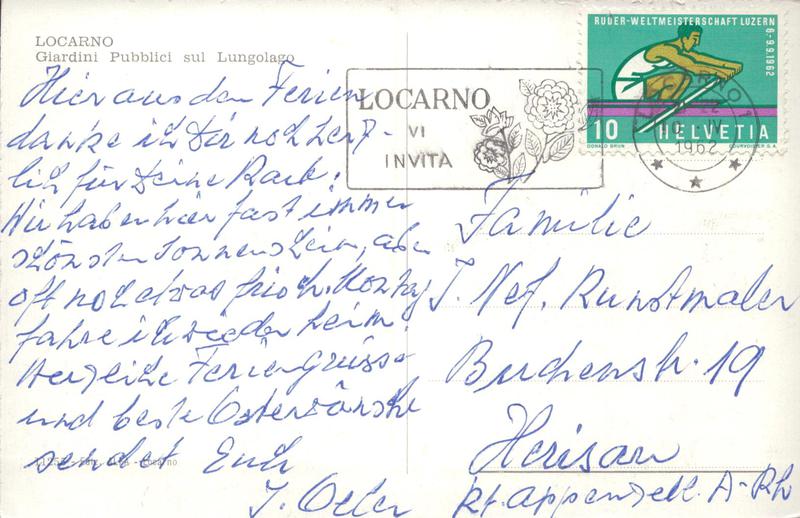 LOCARNO
Giardini Pubblici sul Lungolago
Hier aus den Ferien
danke ich Dir noch herz-
lich für Deine Karte.
Wir haben hier fast immer
schönsten Sonnenschein, aber
oft noch etwas frisch. Montag
fahre ich wieder heim.
Herzliche Feriengrüsse
und beste Osterwünsche
sendet Euch
J.
Locarno
LOCARNO
VI
INVITA
RUDER-WELTMEISTERSCHAFT LUZERN
6-9.9.1962
10 HELVETIA
DONALD BRUN COURVOISIER S.A.
LOCARNO 1
1962
Familie
J. Nef. Kunstmaler
Buchenstr. 19
Herisau
Kt. Appenzell. A-Rh